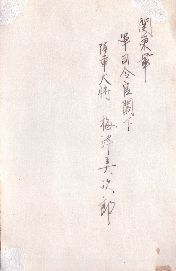 関東軍
軍司令官閣下
陸軍大将 梅津美次郎